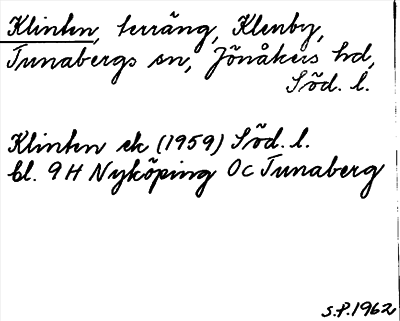 Klinten, terräng, Klenby,
Tunabergs sn, Jönåkers hd,
Söd. l.
Klinten ek (1959) Söd. l.
bl. 9H Nyköping Oc Tunaberg
S.P. 1962